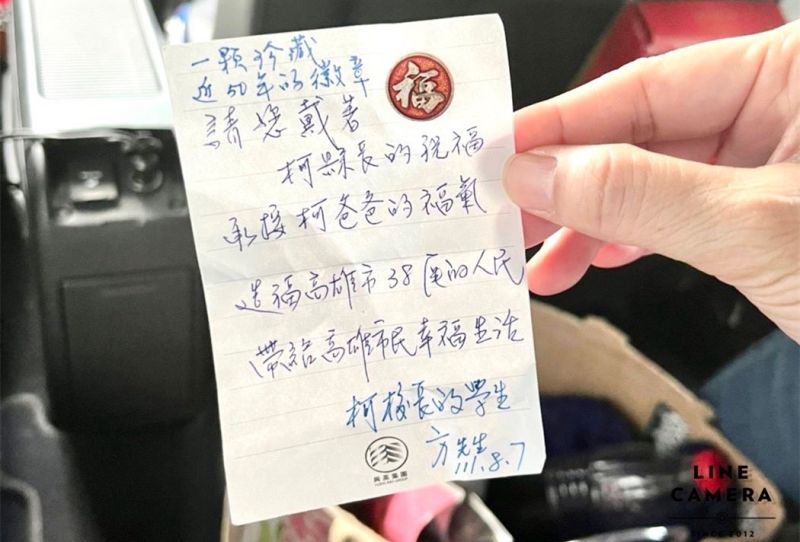 一顆珍藏
近50年的徽章
福
請您戴著
柯縣長的祝福
承接柯爸爸的福氣
造福高雄市38區的人民
帶給高雄市民幸福生活
柯校長的學生
方先生
111.8.7
LINE
CAMERA
SINCE 2012